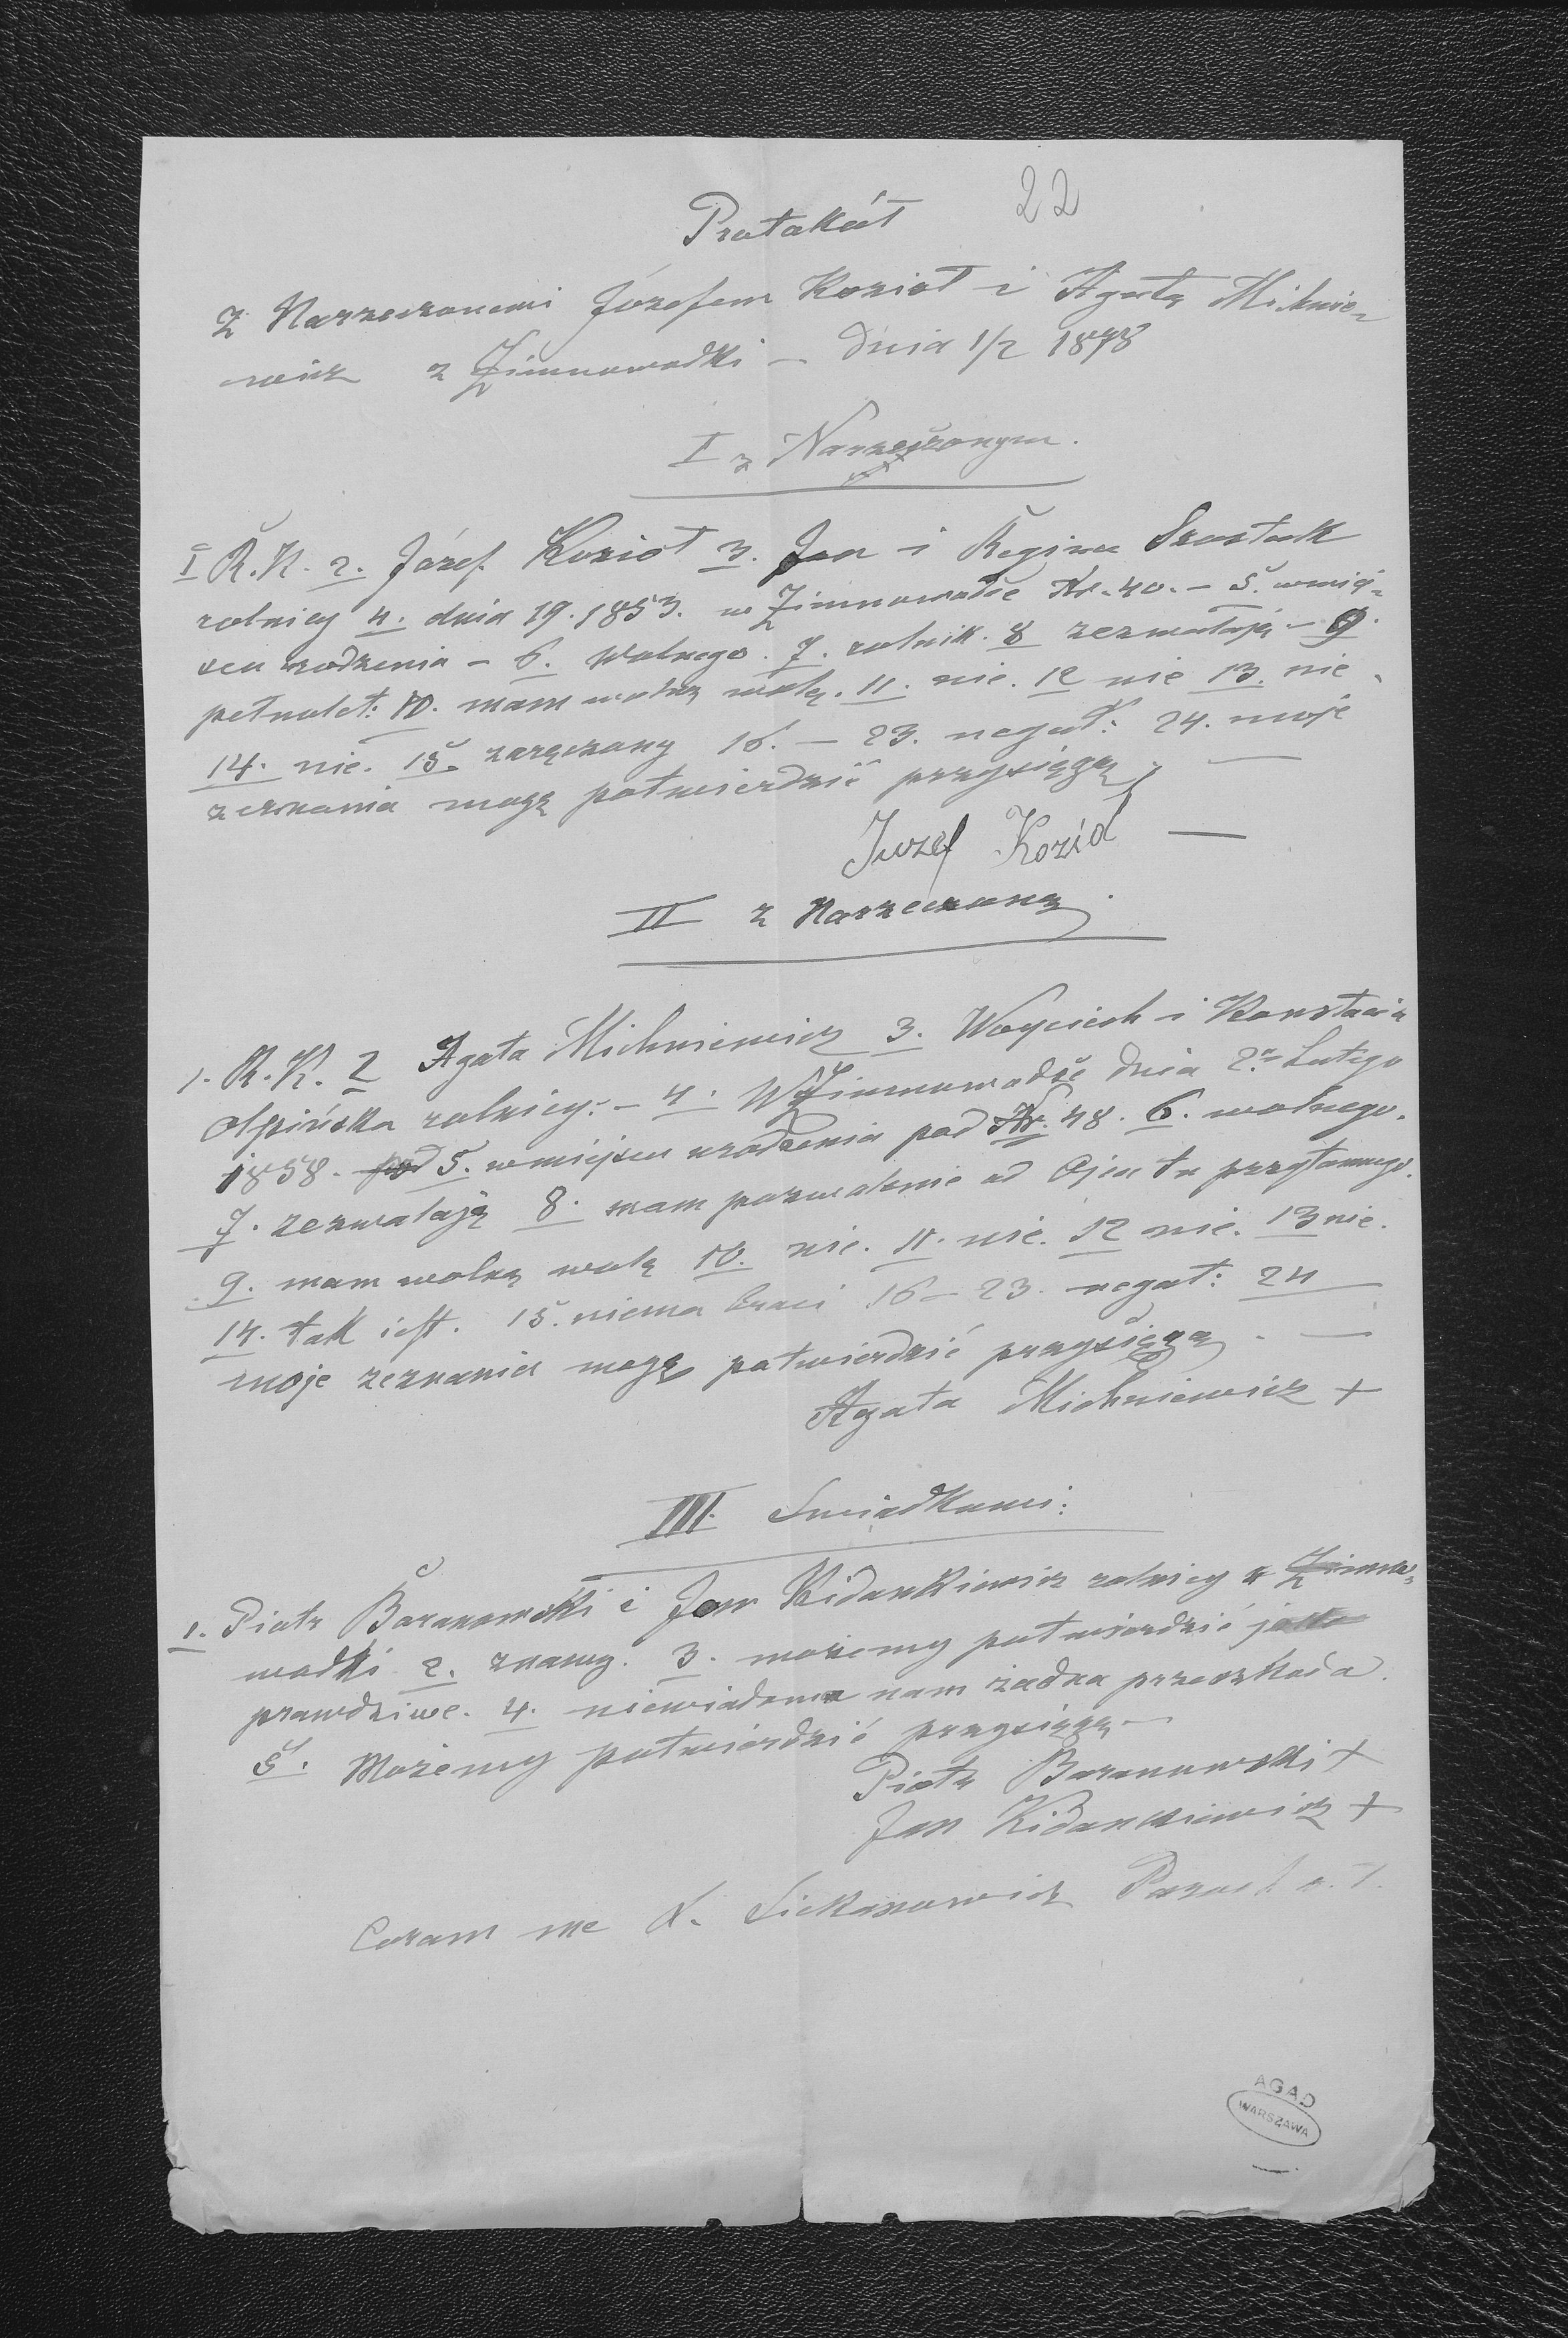 22
Protokół
Z Narzeczonemi Józefem Kozioł i Agatą Mihnie-
wicz z Zimnowodki – dnia 1/2 1878
I z Narzeczonym.
I R. K. 2. Józef Kozioł 3. Jan i Regina Szostak
rolnicy 4. dnia 19. 1853. w Zimnowodce Nr. 40. – 5. w miej-
scu rodzenia – 6. Wolnego. 7. rolnik. 8 zezwalają – 9.
pełnolet: 10. mam wolną wolę. 11. nie. 12 nie 13. nie
14. nie. 15. zaręczony 16. – 23. negat: 24. moje
zeznania mogę potwierdzić przysięgą –
Juzef Kozioł —
II z Narzeczoną.
1. R. K. 2 Agata Michniewicz 3. Woyciech i Konstacia
rolnicy: – 4. W Zimnowodce dnia 2. Lutego
1858. pod 5. w miejscu urodzenia pod Nr. 48. 6. wolnego.
7. zezwalają 8. mam pozwolenie od Ojca tu przytomnego.
9. mam wolną wolę 10. nie. 11. nie. 12 nie. 13 nie.
14. tak iest. 15. niema braci 16 – 23. negat: 24
moje zeznania mogę potwierdzić przysięgą. —
Agata Michniewicz +
III. Swiadkami:
1. Piotr Baranowski i Jan Kidankiewicz rolnicy z Zimno-
wodki 2. znamy. 3. możemy potwierdzić jako
prawdziwe. 4. niewiadoma nam żadna przeszkoda.
5. Możemy potwierdzić przysięgą –
Piotr Baranowski +
Jan Kidankiewicz +
Coram me
AGAD
WARSZAWA